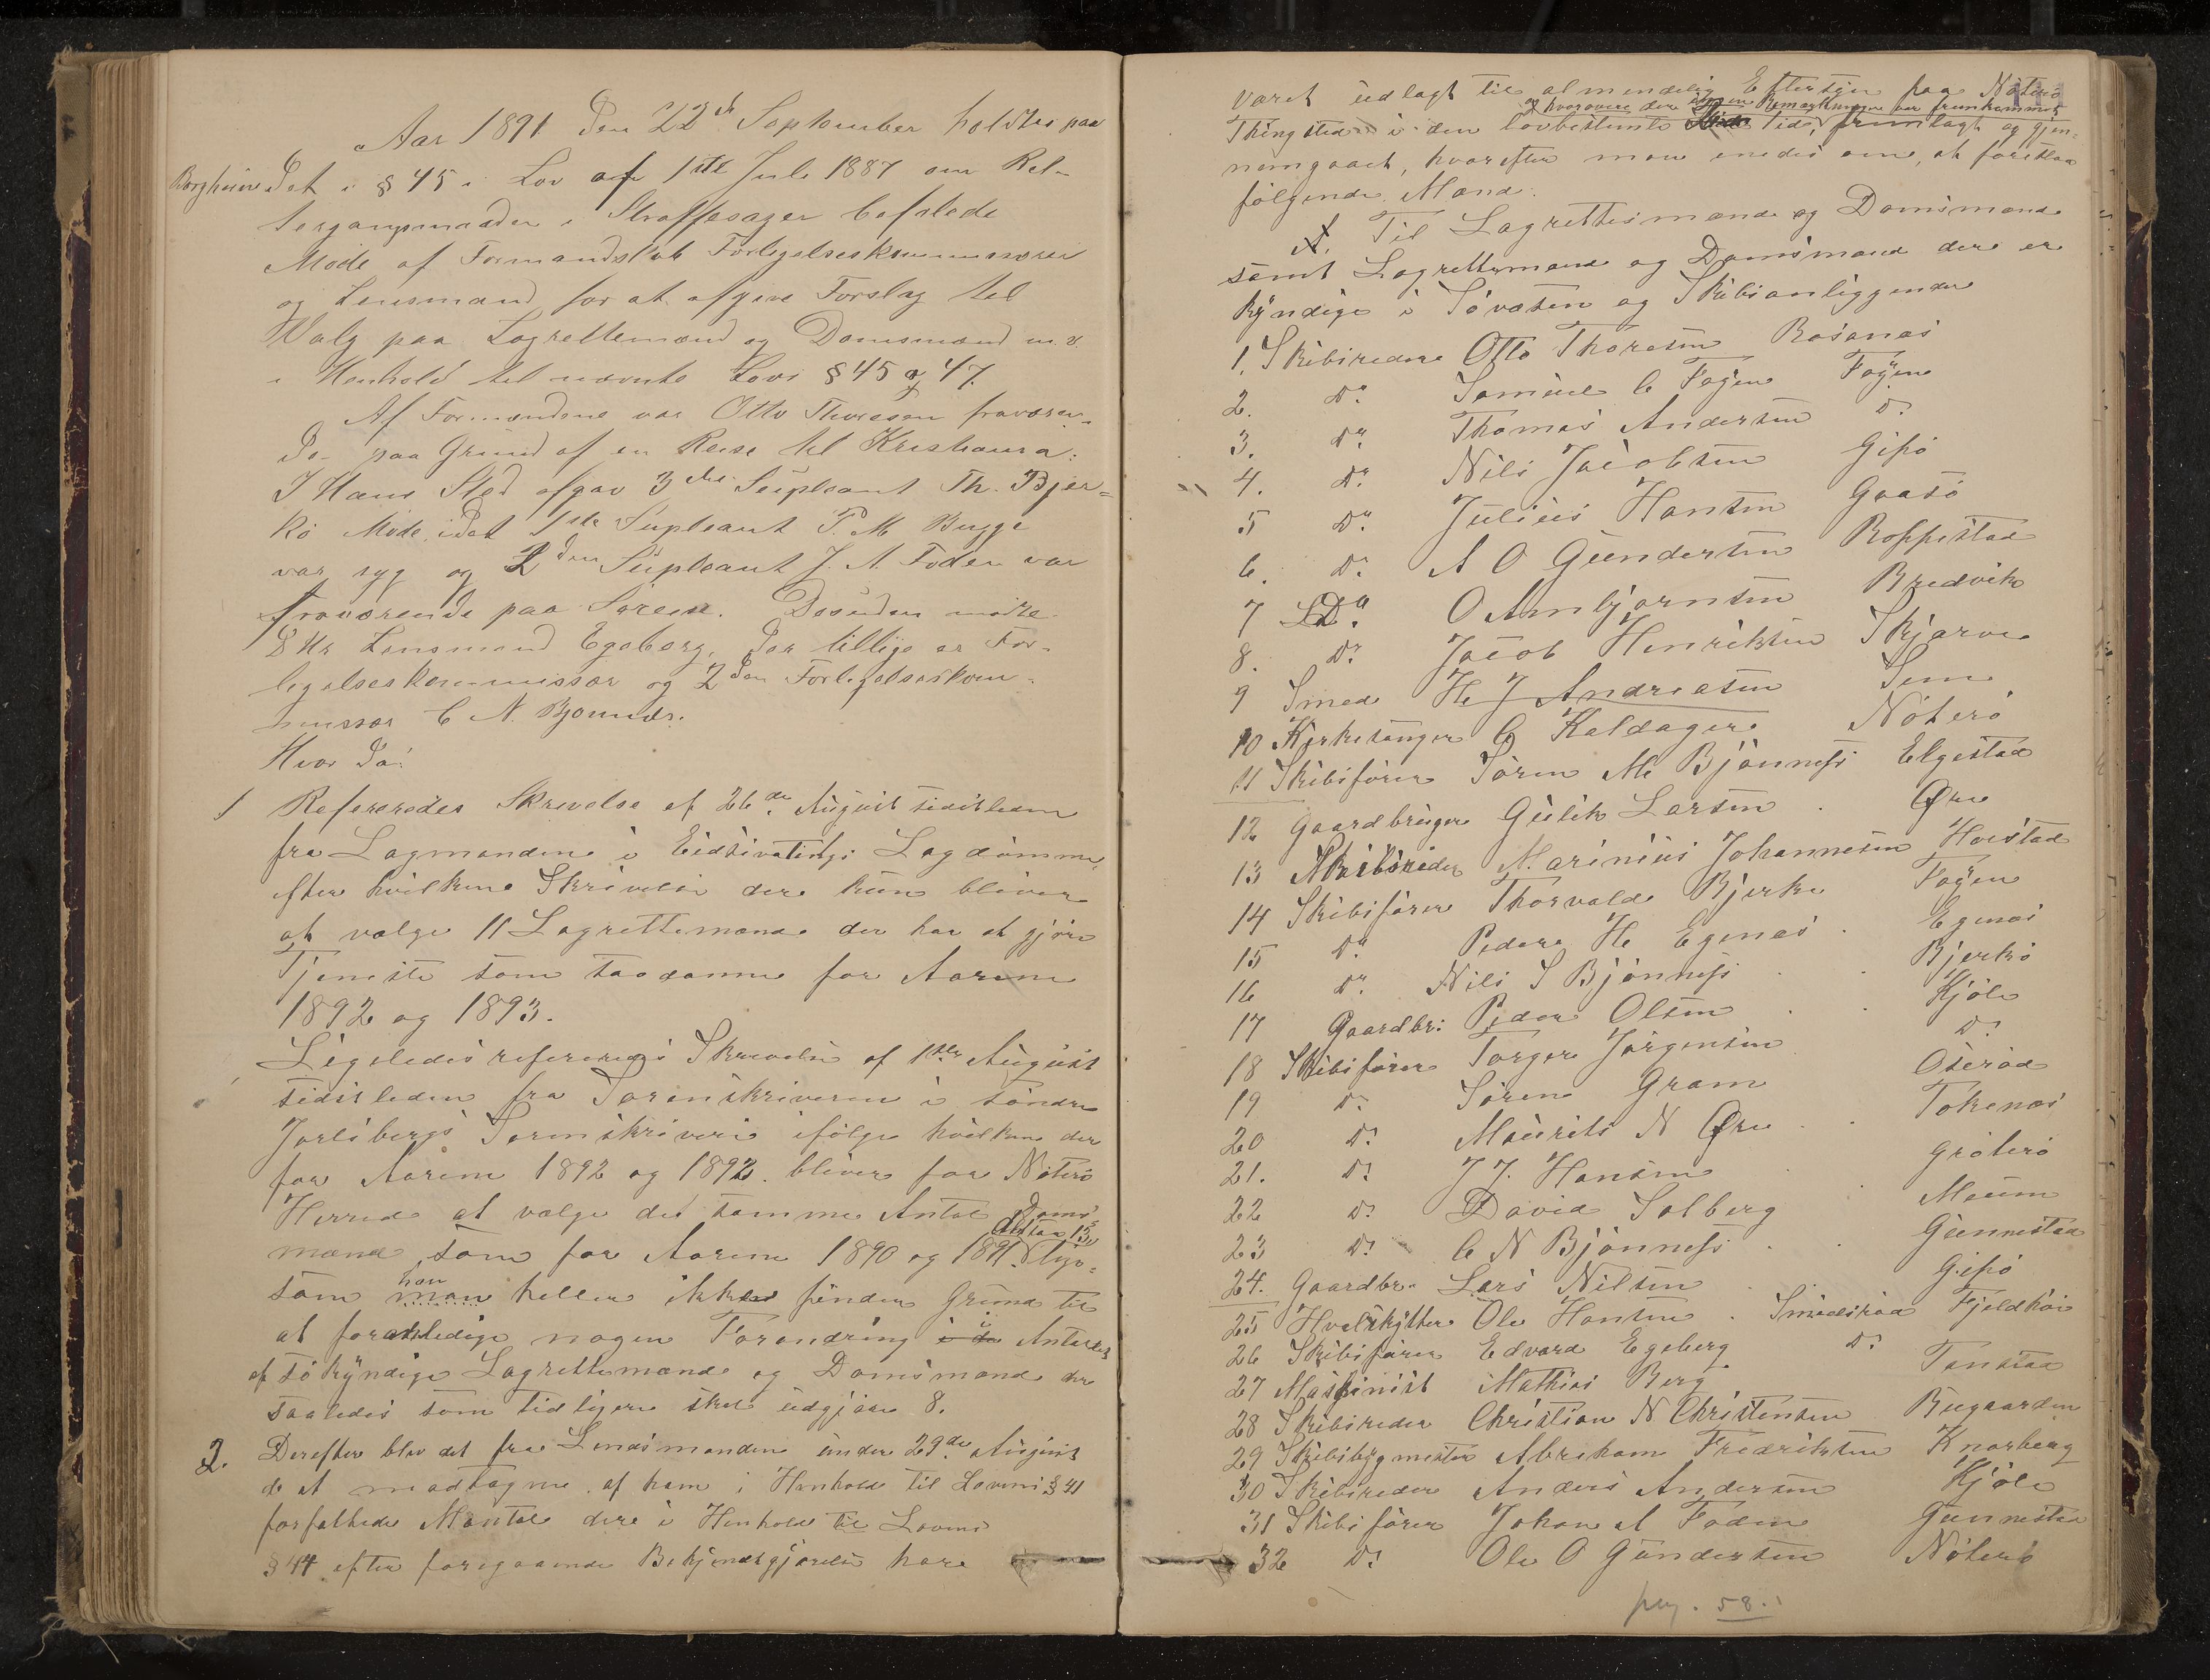 Aar 1891 Den 22de September holdtes paa
Borgheim Det i § 45 i Lov af 1ste Juli 1887 om Ret-
tergangsmaaden i Straffesager befalede
Møde af Formandskab Forligelseskommissærer
og Lensmand for at afgive Forslag til
Valg paa Lagrettemænd og Domsmænd m. v.
i Henhold til nævnte Lovs § 45 og 47.
Af Formændene var Otto Thoresen fraværen-
de paa Grund af en Reise til Kristiania:
I Hans Sted afgav 3die Supleant Th. Bjer-
kø Møde, idet 1ste Supleant P. M. Bugge
var syg og 2den Supleant J. A. Foden var
fraværende paa Søreise. Desuden mødte
Hr Lensmand Egeberg, der tillige er For-
ligelseskommissær og 2den Forligelseskom-
missær C N. Bjønnes.
Hvor Da:
1 Refereredes Skrivelse af 26de August sidstleden
fra Lagmanden i Eidsivatings Lagdømme,
efter hvilken Skrivelse der kun bliver
at vælge 11 Lagrettemænd der har at gjøre
Tjeneste som saadanne for Aarene
1892 og 1893.
Ligeledes refereredes Skrivelse af 1ste August
sidstleden fra Sorenskriveren i søndre
Jarlsbergs Sorenskriveri ifølge hvilken der
for Aarene 1892 og 1893 bliver for Nøterø
Herred at vælge det samme Antal Doms-
mænd som for Aarene 1890 og 1891. Altsaa 13. Lige-
som man han heller ikke finder Grund til
at foranledige nogen Forandring i Antallet
af søkyndige Lagrettemænd og Domsmænd der
saaledes som tidligere skal udgjøre 8.
2. Derefter blev det fra Lensmanden under 29de August
d. A modtagne af ham i Henhold til Lovens § 41
forfattede Mantal der i Henhold til Lovens
§ 44 efter foregaaende Bekjendtgjørelse har
været udlagt til almindelig Eftersyn paa Nøterø
og hvorover der ingen Bemærkninger var fremkommet
Thingsted i den lovbestemte Tid, fremlagt og gjen-
nemgaaet, hvorefter man enedes om, at foreslaa
følgende Mænd:
A. Til Lagrettesmænd og Domsmænd
samt Lagrettemænd og Domsmænd der er
kyndige i Søvæsen og Skibsanliggender
1. Skibsreder Otto Thoresen Rosanæs
2. Do. Samuel C Føyen Føyen
3. Do. Thomas Andersen Do.
4. Do. Nils Jacobsen Gipø
5 Do. Julius Hansen Gaasø
6. Do. A O Gundersen Roppestad
7 Do. O Arnbjørnsen Bredvik
8. Do. Jacob Henriksen Skjærve
9 Smed H J Andreasen Sem
10 Kirkesanger C Kaldager Nøterø
11 Skibsfører Søren M Bjønness Elgestad
12 Gaardbruger Gulik Larsen Øre
13 Skibsreder Marinius Johannesen Hovstad
14 Skibsfører Thorvald Bjerke Føyen
15 Do. Peder H Egenæs Egenæs
16 Do. Nils S Bjønness Bjerkø
17 Gaardbr: Peder Olsen Kjøle
18 Skibsfører Torger Jørgensen Do.
19 Do. Søren Gram Oserød
20 Do. Maurits N Øre Tokenæs
21. Do. J J. Hansen Grøterø
22 Do. David Solberg Maum
23 Do. C N Bjønness Gunnestad
24. Gaardbr. Lars Nilsen Gipø
25 Hvalskytter Ole Hansen Smidsrød Fjeldhøi
26 Skibsfører Edvard Egeberg Do.
27 Maskinist Mathias Berg Tanstad
28 Skibsreder Christian N Christensen Bugaarden
29 Skibsbygmester Abraham Fredriksen Knarberg
30 Skibsreder Anders Andersen Kjøle
31 Skibsfører Johan A Foden Gunnestad
32 Do. Ole O Gundersen Nøterø
pag. 58.